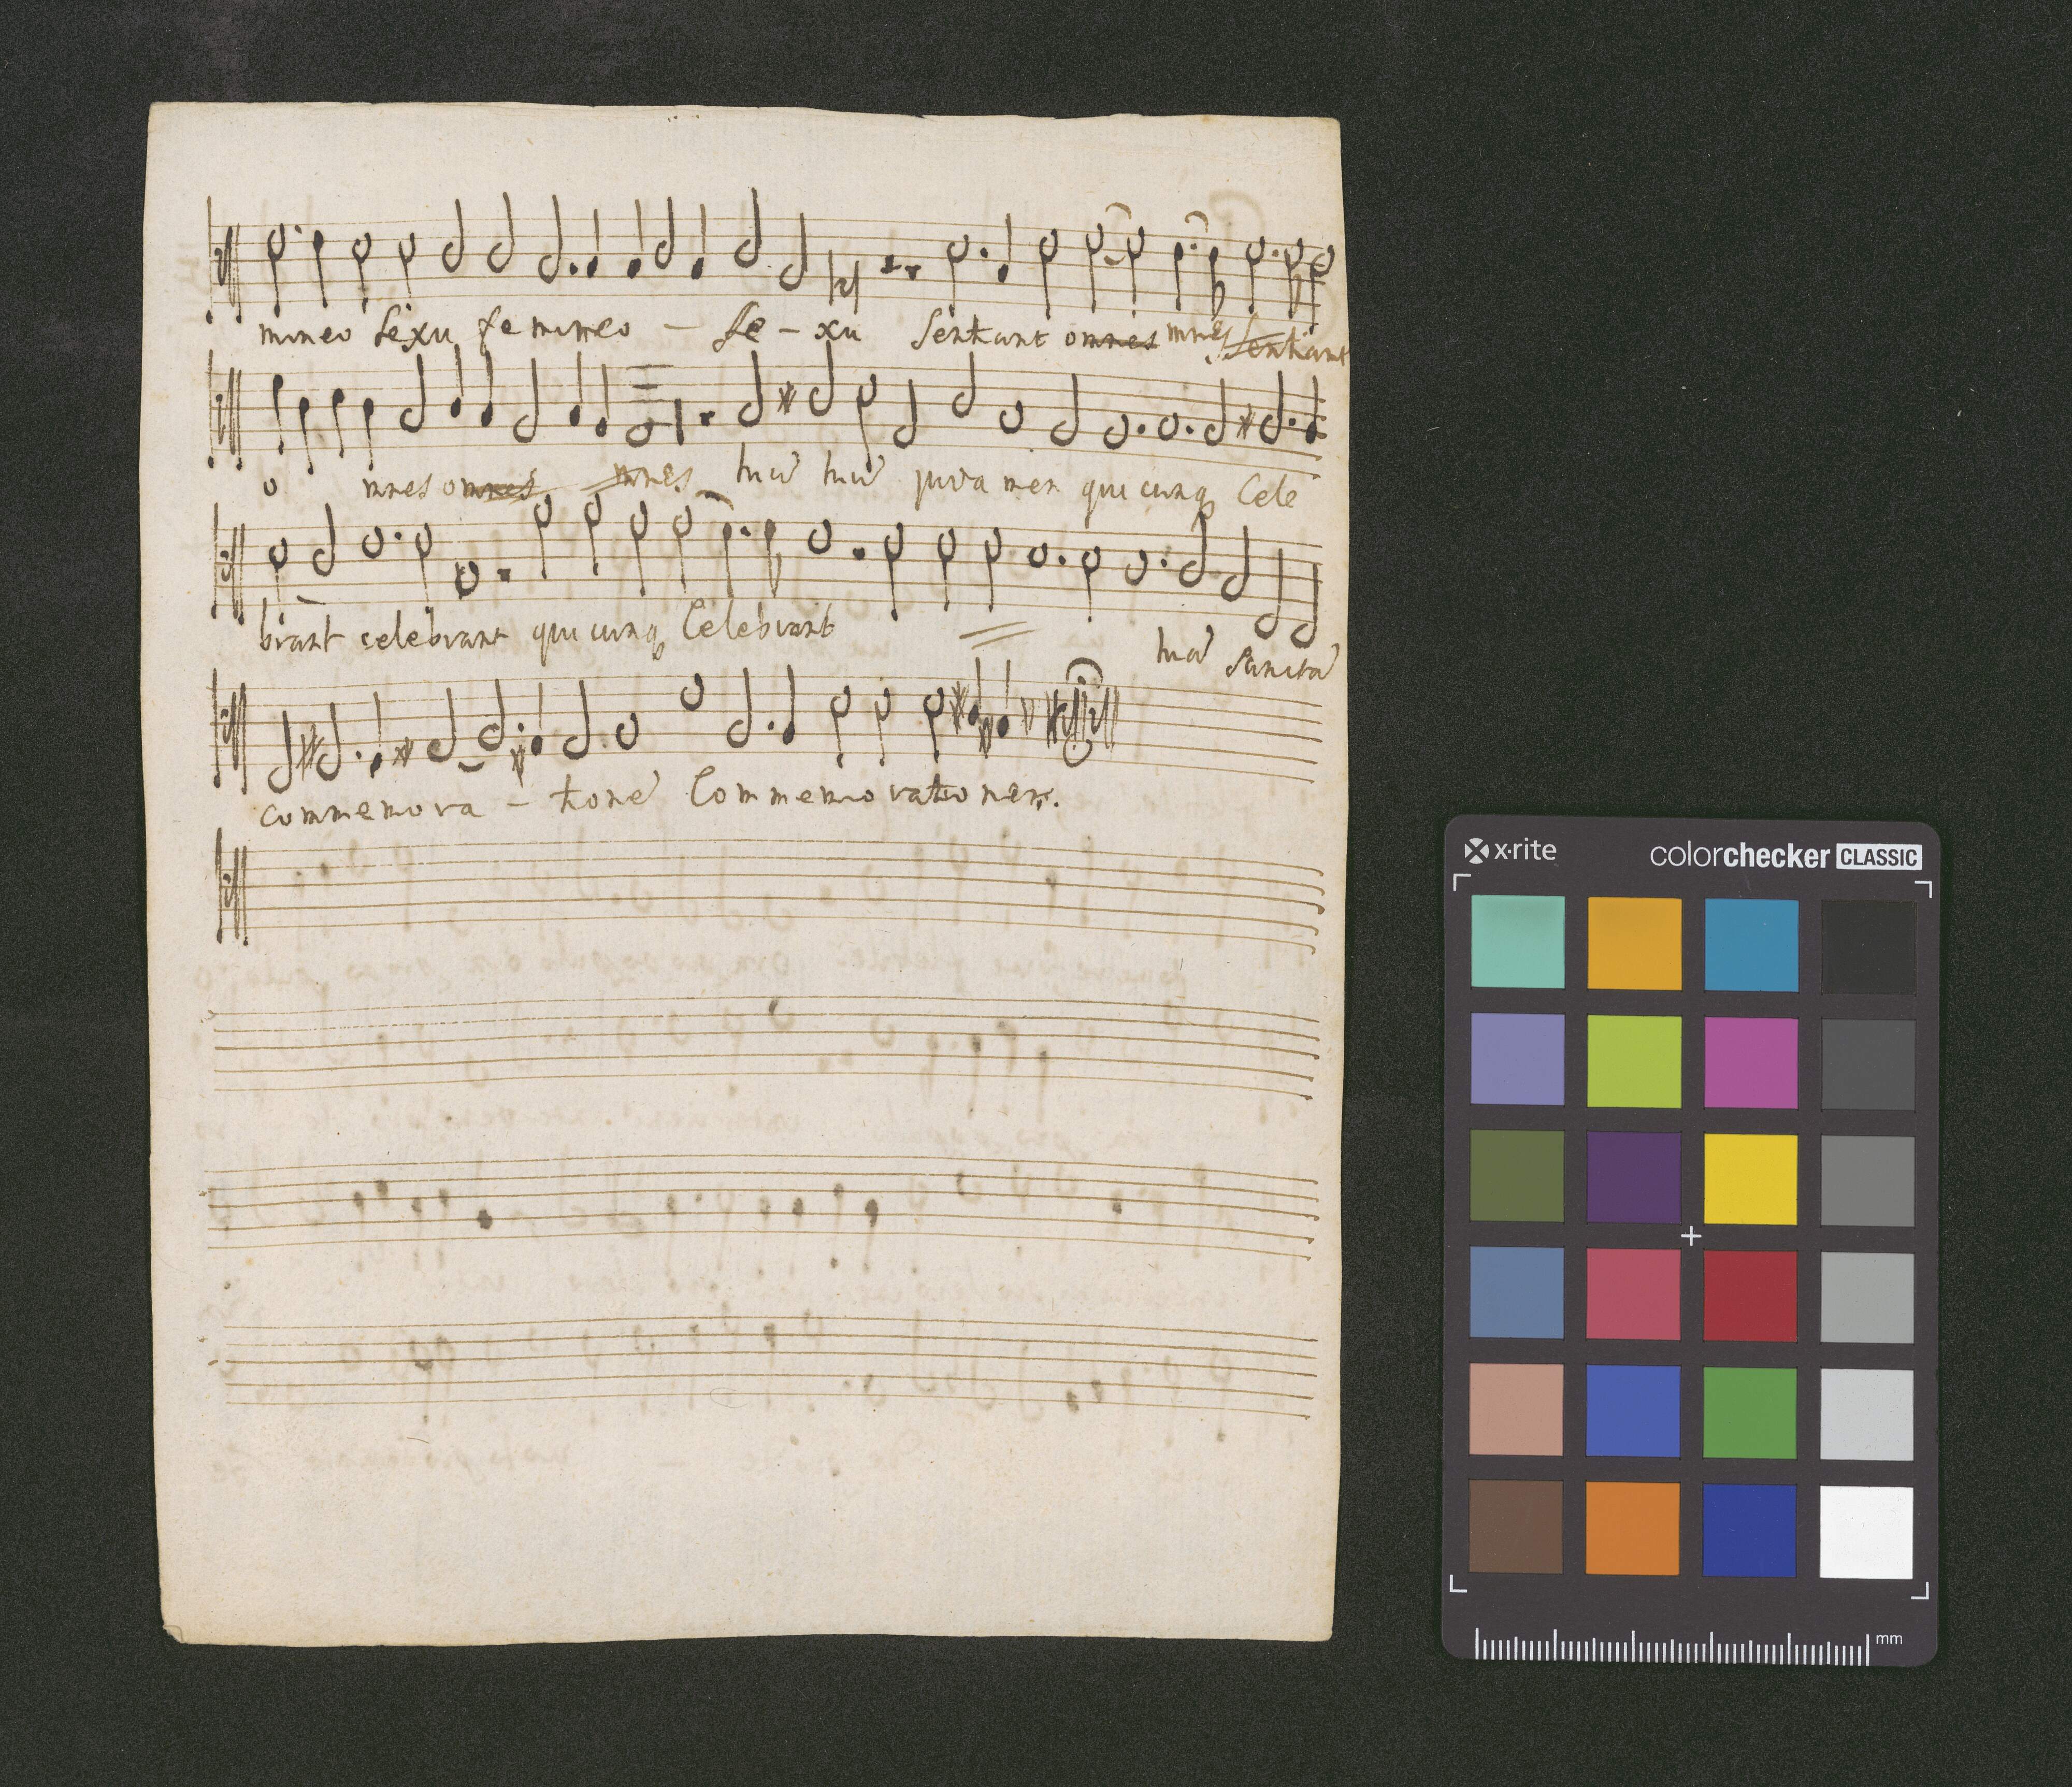 mineo Sexu femineo – Se – xu Sentiant omnes mnes Sentiant
o mnes omnes mnes tuũ tuũ juva men qui cunq Cele
brant celebrant qui cunq Celebrant tuã Sanctã
commemora – tionẽ Commemorationem.
x·rite colorchecker CLASSIC
mm